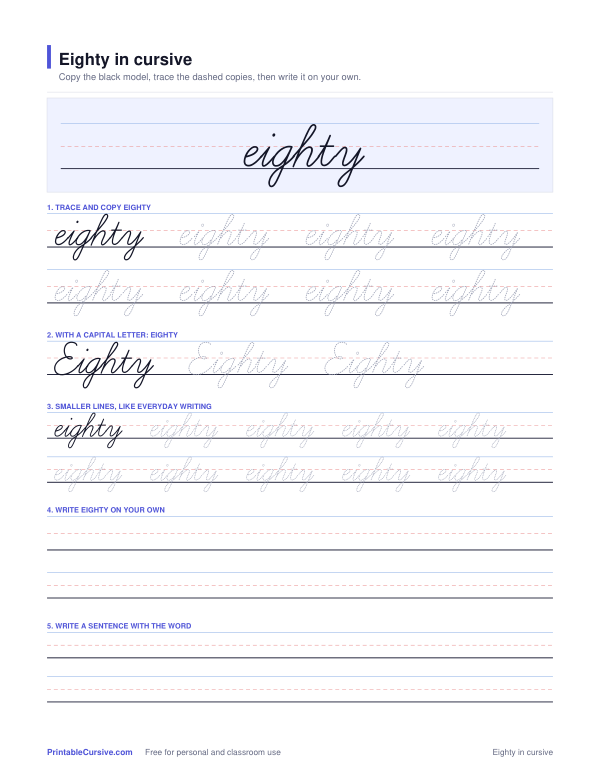 Eighty in cursive
Copy the black model, trace the dashed copies, then write it on your own.
eighty
1. TRACE AND COPY EIGHTY
eighty eighty eighty eighty
eighty eighty eighty eighty
2. WITH A CAPITAL LETTER: EIGHTY
Eighty Eighty Eighty
3. SMALLER LINES, LIKE EVERYDAY WRITING
eighty eighty eighty eighty eighty
eighty eighty eighty eighty eighty
4. WRITE EIGHTY ON YOUR OWN
5. WRITE A SENTENCE WITH THE WORD
PrintableCursive.com Free for personal and classroom use Eighty in cursive